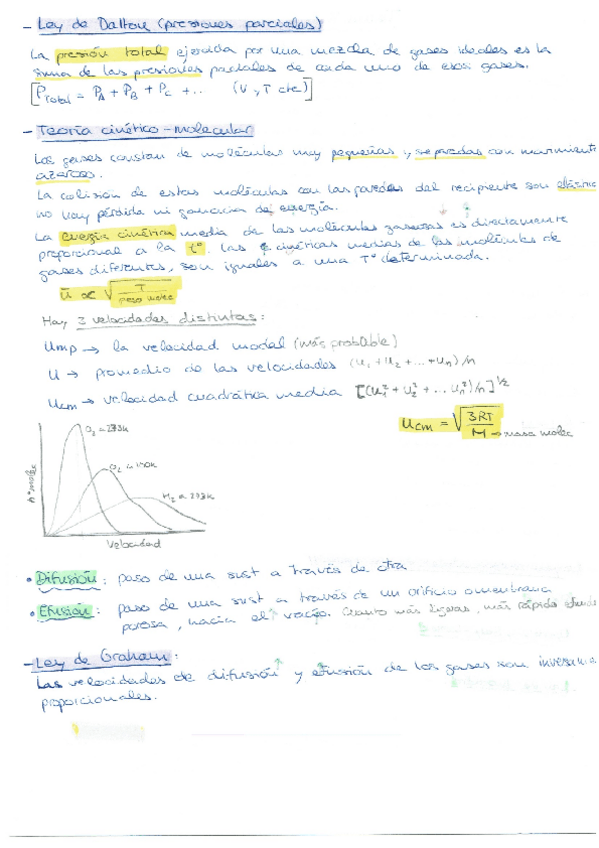 - Ley de Dalton (presiones parciales)
La presión total ejercida por una mezcla de gases ideales es la
suma de las presiones parciales de cada uno de esos gases.
[P Total = PA + PB + PC + ... (V, T cte)]
- Teoría cinético-molecular
Los gases constan de moléculas muy pequeñas y separadas con movimiento
azaroso.
La colisión de estas moléculas con las paredes del recipiente son elástica
no hay pérdida ni ganancia de energía.
La energía cinética media de las moléculas gaseosas es directamente
proporcional a la tº. Las E cinéticas medias de las moléculas de
gases diferentes, son iguales a una Tº determinada.
ū ∝ √(T / peso molec)
Hay 3 velocidades distintas:
Ump → la velocidad modal (más probable)
U → promedio de las velocidades (u1 + u2 + ... + un)/n
Ucm → velocidad cuadrática media [(u1² + u2² + ... un²)/n]^1/2
Ucm = √(3RT / M) → masa molec
O2 a 273K
H2 a 273K
nº molec
Velocidad
• Difusión: paso de una sust a través de otra
• Efusión: paso de una sust a través de un orificio o membrana
porosa, hacia el vacío. Cuanto más ligeras, más rápido
- Ley de Graham:
Las velocidades de difusión y efusión de los gases son
proporcionales.